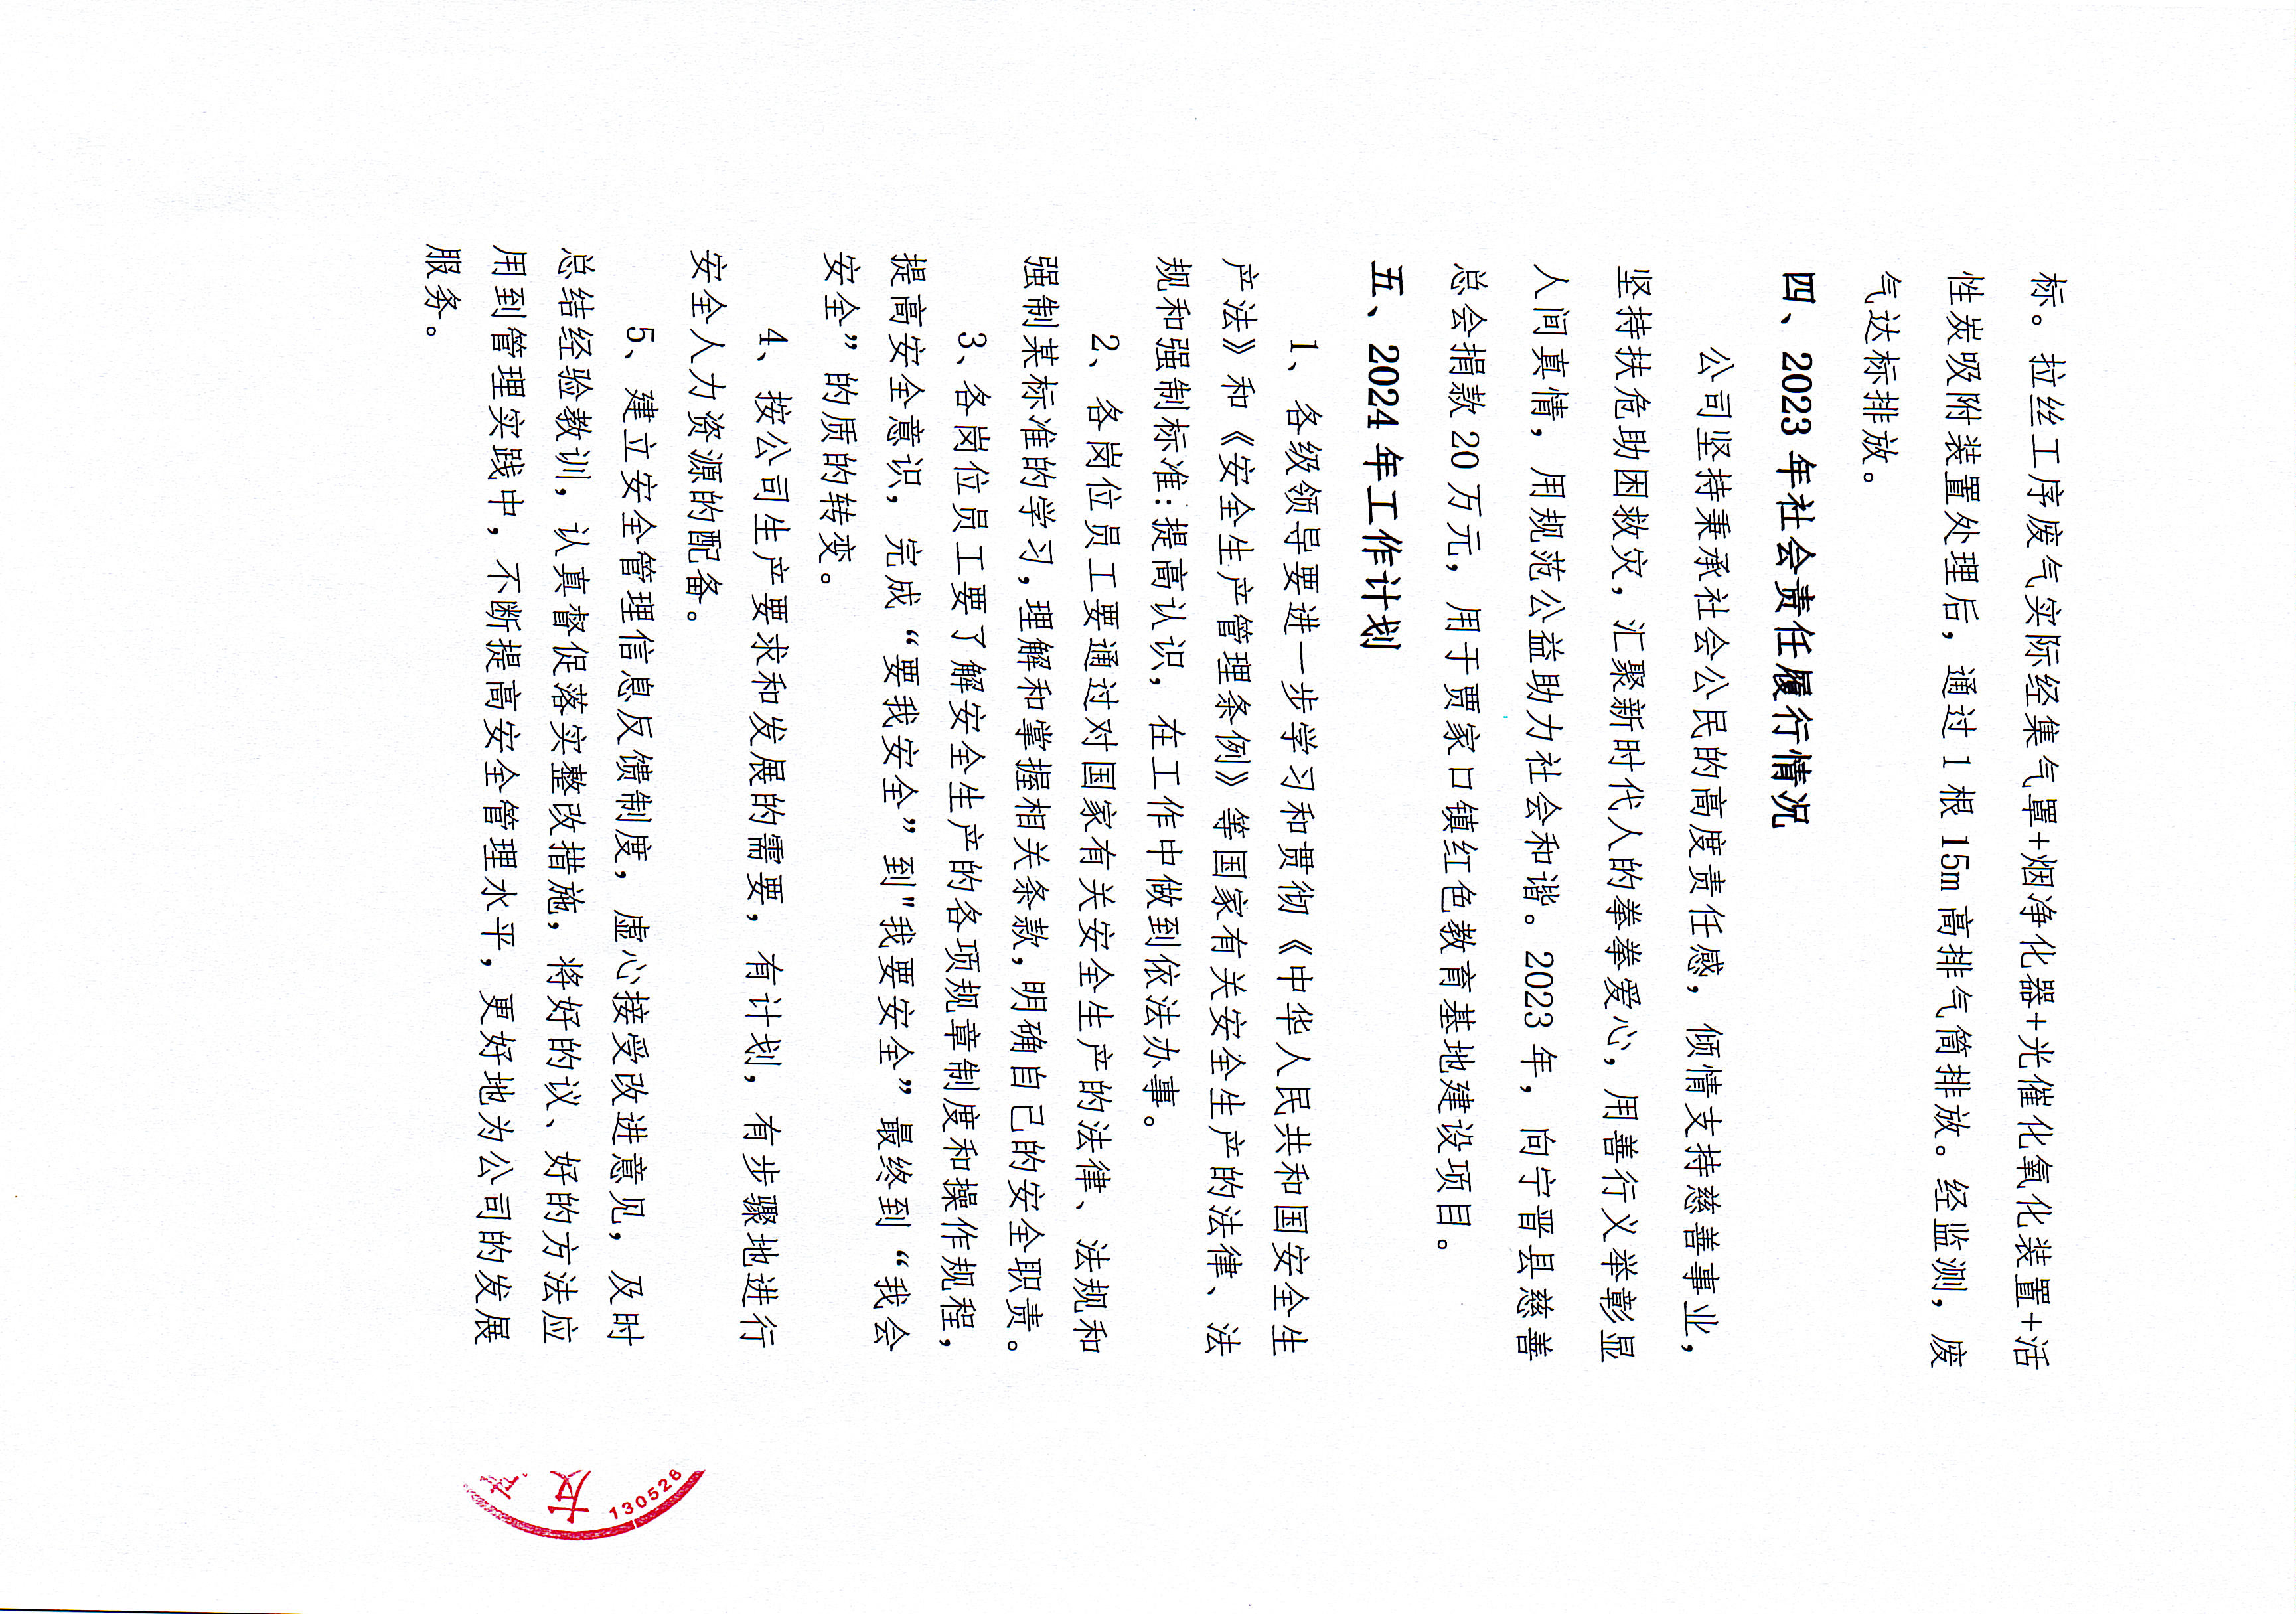 标。拉丝工序废气实际经集气罩+烟净化器+光催化氧化装置+活
性炭吸附装置处理后，通过 1 根 15m 高排气筒排放。经监测，废
气达标排放。
四、2023 年社会责任履行情况
公司坚持秉承社会公民的高度责任感，倾情支持慈善事业，
坚持扶危助困救灾，汇聚新时代人的拳拳爱心，用善行义举彰显
人间真情，用规范公益助力社会和谐。2023 年，向宁晋县慈善
总会捐款 20 万元，用于贾家口镇红色教育基地建设项目。
五、2024 年工作计划
1、各级领导要进一步学习和贯彻《中华人民共和国安全生
产法》和《安全生产管理条例》等国家有关安全生产的法律、法
规和强制标准:提高认识，在工作中做到依法办事。
2、各岗位员工要通过对国家有关安全生产的法律、法规和
强制某标准的学习,理解和掌握相关条款,明确自己的安全职责。
3、各岗位员工要了解安全生产的各项规章制度和操作规程，
提高安全意识，完成“要我安全”到"我要安全”最终到“我会
安全”的质的转变。
4、按公司生产要求和发展的需要，有计划，有步骤地进行
安全人力资源的配备。
5、建立安全管理信息反馈制度，虚心接受改进意见，及时
总结经验教训，认真督促落实整改措施，将好的议、好的方法应
用到管理实践中，不断提高安全管理水平，更好地为公司的发展
服务。
友
130528